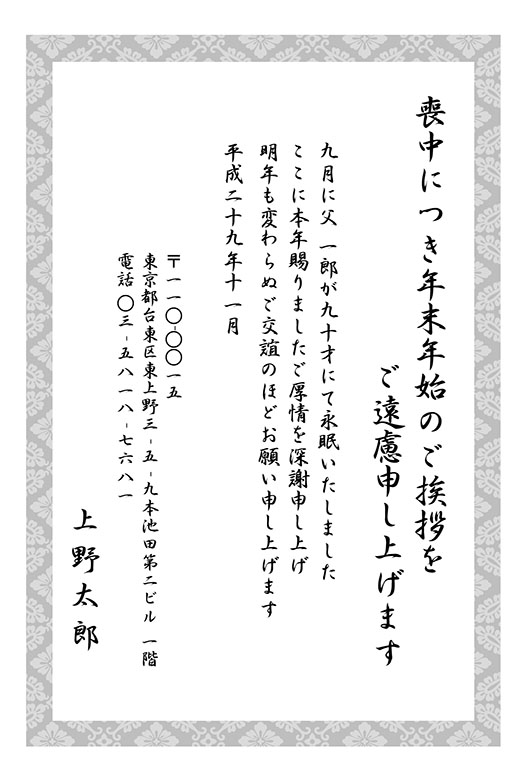 喪中につき年末年始のご挨拶を
ご遠慮申し上げます
九月に父 一郎が九十才にて永眠いたしました
ここに本年賜りましたご厚情を深謝申し上げ
明年も変わらぬご交誼のほどお願い申し上げます
平成二十九年十一月
〒一一〇-〇〇一五
東京都台東区東上野三-五-九本池田第二ビル 一階
電話 〇三-五八一八-七六八一
上野太郎